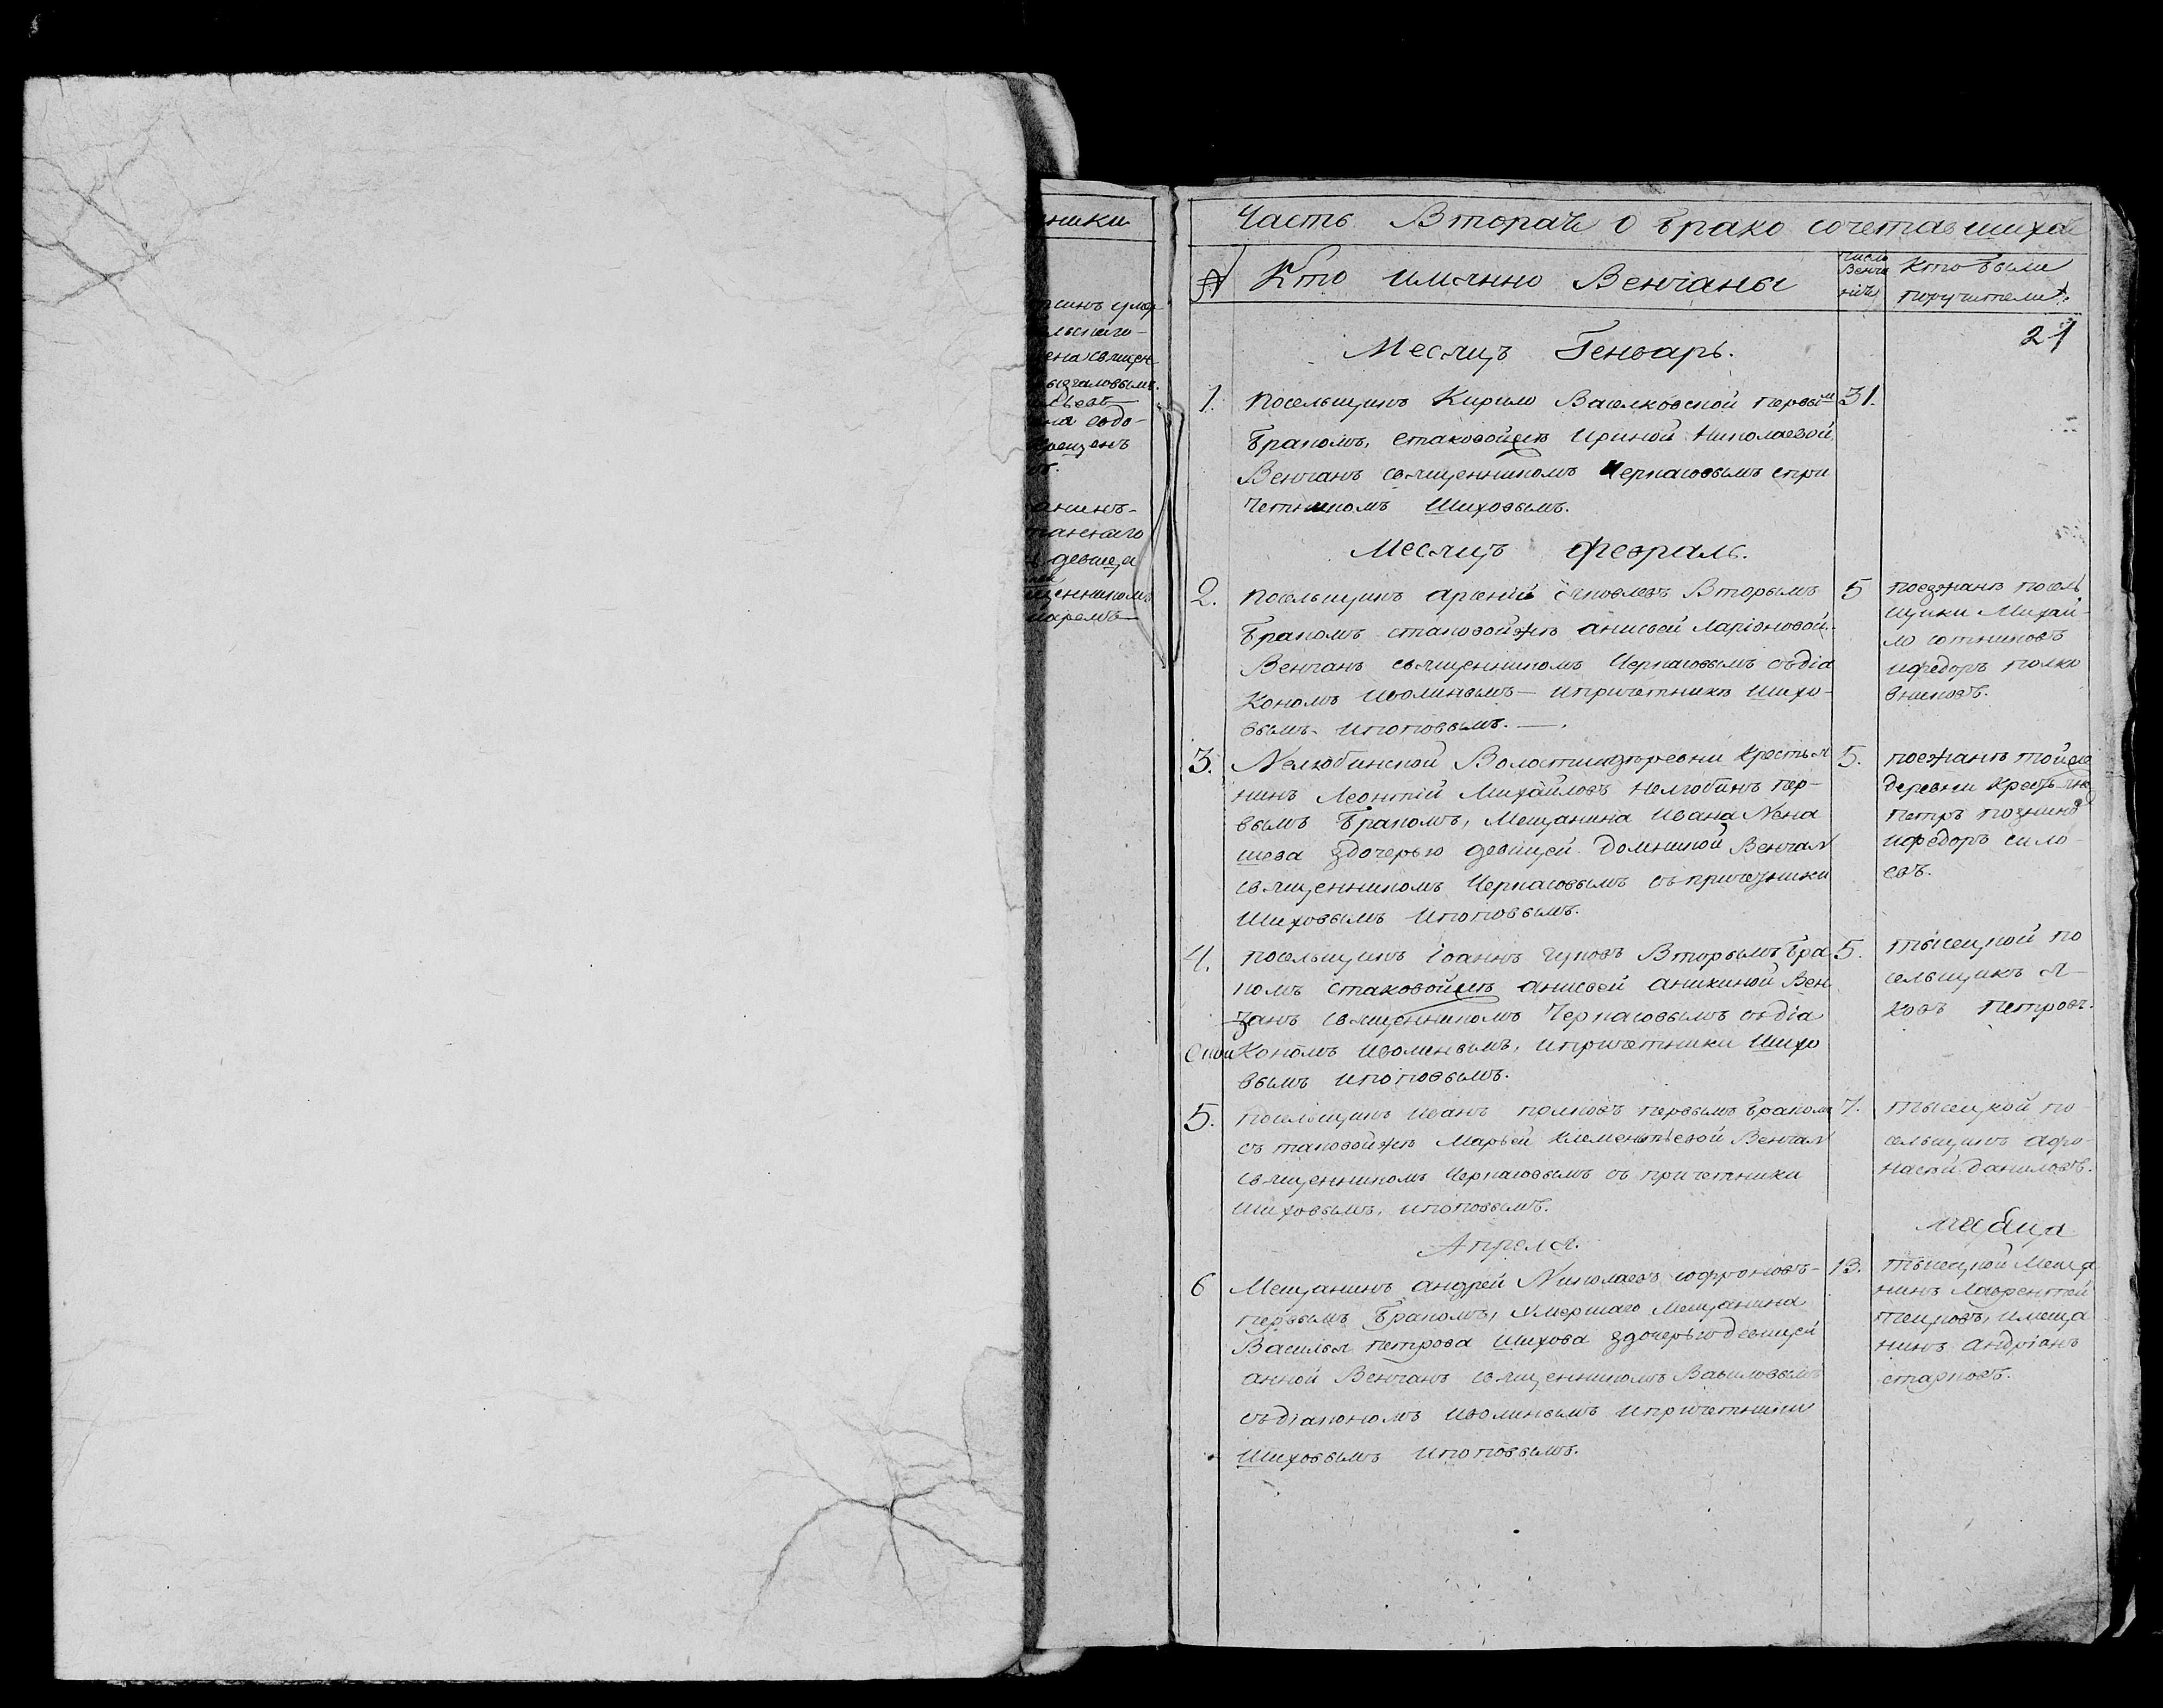 ники
ена священ
на водо-
крещенъ
анинъ-
девица
щенникомъ
Часть Вторая о брако сочетавшихся
№ Кто имянно Венчаны
число Венчанія
Кто были
поручители
21
Месяцъ Генварь.
1. посельщикъ Кирило Васелковской первым 31.
бракомъ, стаковойже Ириной Николаевой
Венчанъ священникомъ Черкасовымъ спри
четникомъ Шиховымъ.
Месяцъ февраль.
2. посельщикъ арсеній яковлевъ Вторымъ 5
бракомъ стаковойже анисьей ларіоновой.
Венчанъ священникомъ Черкасовымъ съдіа
кономъ Иволинымъ — ипричетники Шихо-
вымъ ипоповымъ. —
поезжанъ посель
щики Михай-
ло сотниковъ
ифедоръ полко
вниковъ.
3. Нелюбинской Волости деревни крестья 5.
нинъ Леонтій Михайловъ нелюбинъ пер-
вымъ бракомъ, Мещанина Ивана Нена
шева здочерью девицей домникой Венчан
священникомъ Черкасовымъ съ причетники
Шиховымъ ипоповымъ.
поезжанъ тойже
деревни крестьяне
петръ
ифедоръ сило-
въ.
4. посельщикъ Іоаннъ чуповъ Вторымъ бра 5.
комъ стаковойже анисьей аникиной Вен
чанъ священникомъ Черкасовымъ съдіа
кономъ Иволинымъ, ипричетники Шихо
вымъ ипоповымъ.
тысецкой по
сельщикъ я-
ковъ петровъ.
5. посельщикъ Иванъ полковъ первымъ бракомъ 7.
съ таковойже Марьей Клементьевой Венчан
священникомъ Черкасовымъ съ причетники
Шиховымъ, ипоповымъ.
тысецкой по-
сельщикъ афо-
насей даниловъ.
Апреля.
6 Мещанинъ андрей Николаевъ софроновъ- 13.
первымъ бракомъ, умершаго мещанина
Василья петрова Шихова здочерью девицей
анной Венчанъ священникомъ Вавиловымъ
съдіакономъ Иволинымъ ипричетники
Шиховымъ ипоповымъ.
тысецкой Меща
нинъ Лаврентей
имеща
нинъ андріанъ
старковъ.